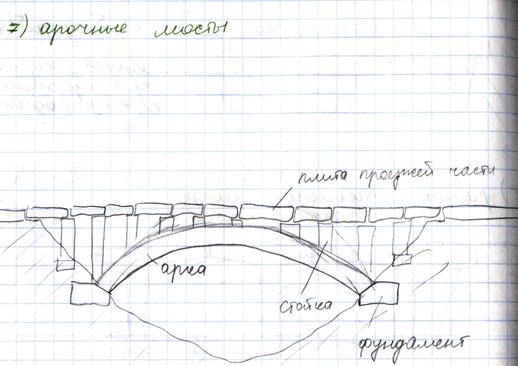 7) арочные мосты
плита проезжей части
арка
стойка
фундамент